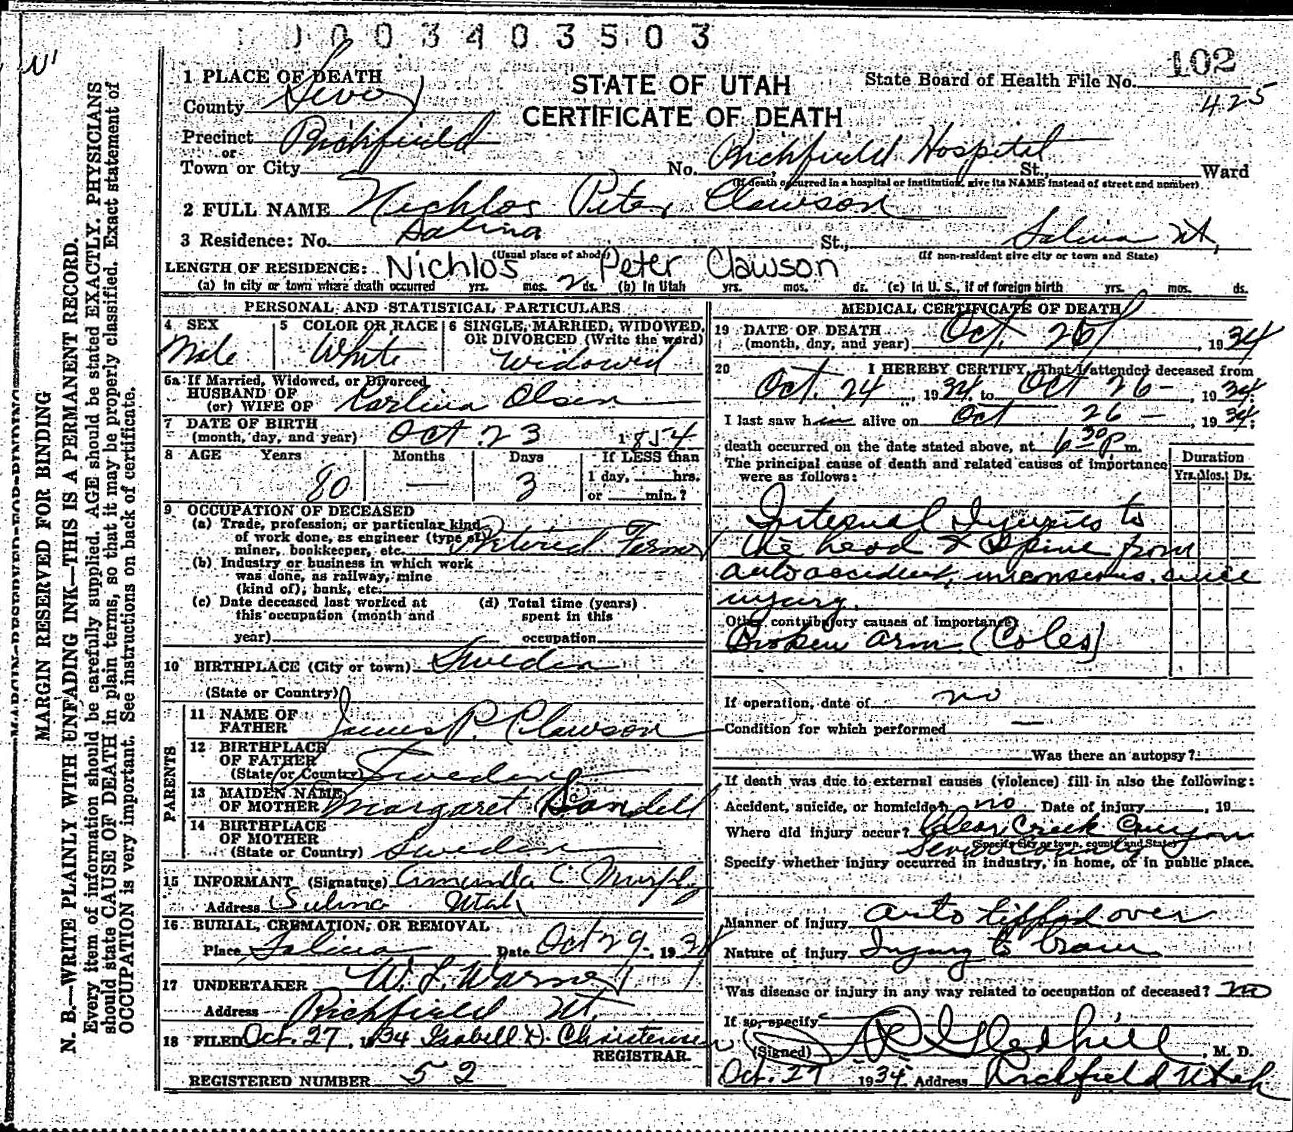 0 0 0 3 4 0 3 5 0 3
102
425
STATE OF UTAH
CERTIFICATE OF DEATH
State Board of Health File No.
1 PLACE OF DEATH
County Sevier
Precinct Richfield
or
Town or City No. Richfield Hospital St., Ward
(If death occurred in a hospital or institution, give its NAME instead of street and number).
2 FULL NAME Nichlos Peter Clawson
3 Residence: No. Salina St., Salina Ut,
(Usual place of abode) (If non-resident give city or town and State)
LENGTH OF RESIDENCE: Nichlos Peter Clawson
(a) In city or town where death occurred yrs. mos. 2 ds. (b) In Utah yrs. mos. ds. (c) In U. S., if of foreign birth yrs. mos. ds.
PERSONAL AND STATISTICAL PARTICULARS
4 SEX 5 COLOR OR RACE 6 SINGLE, MARRIED, WIDOWED, OR DIVORCED (Write the word)
Male White Widowed
6a If Married, Widowed, or Divorced
HUSBAND OF
(or) WIFE OF Karlina Olsen
7 DATE OF BIRTH
(month, day, and year) Oct. 23 1854
8 AGE Years Months Days If LESS than
80 — 3 1 day, hrs.
or min.?
9 OCCUPATION OF DECEASED
(a) Trade, profession, or particular kind
of work done, as engineer (type of
miner, bookkeeper, etc. Retired Farmer
(b) Industry or business in which work
was done, as railway, mine
(kind of), bank, etc.
(c) Date deceased last worked at (d) Total time (years)
this occupation (month and spent in this
year) occupation
10 BIRTHPLACE (City or town) Sweden
(State or Country)
PARENTS
11 NAME OF
FATHER James P. Clawson
12 BIRTHPLACE
OF FATHER
(State or Country) Sweden
13 MAIDEN NAME
OF MOTHER Margaret Sandell
14 BIRTHPLACE
OF MOTHER
(State or Country) Sweden
15 INFORMANT (Signature) Amenda C Murphy
Address Salina Utah
16 BURIAL, CREMATION, OR REMOVAL
Place Salina Date Oct 29, 1934
17 UNDERTAKER W. L. Warner
Address Richfield Ut.
18 FILED Oct. 27, 1934 Isabell D. Christensen
REGISTRAR
REGISTERED NUMBER 52
MEDICAL CERTIFICATE OF DEATH
19 DATE OF DEATH
(month, day, and year) Oct. 26, 1934
20 I HEREBY CERTIFY, That I attended deceased from
Oct. 24, 1934, to Oct 26 - 1934;
I last saw him alive on Oct 26 — 1934;
death occurred on the date stated above, at 6 30 P m.
The principal cause of death and related causes of importance
were as follows:
Duration
Yrs. Mos. Ds.
Internal Injuries to
the head & Spine from
auto accident, unconscious since
injury.
Other contributory causes of importance:
Broken arm (Coles)
If operation, date of no
Condition for which performed —
Was there an autopsy?
If death was due to external causes (violence) fill in also the following:
Accident, suicide, or homicide? no Date of injury 19
Where did injury occur? Clear Creek Canyon
(Specify city or town, county and State)
Sevier County
Specify whether injury occurred in industry, in home, or in public place.
Manner of injury auto tipped over
Nature of injury Injury to brain
Was disease or injury in any way related to occupation of deceased? no
If so, specify
(Signed) Gledhill, M. D.
Oct. 27 1934 Address Richfield Utah
MARGIN RESERVED FOR BINDING
N. B.—WRITE PLAINLY WITH UNFADING INK—THIS IS A PERMANENT RECORD.
Every item of information should be carefully supplied. AGE should be stated EXACTLY. PHYSICIANS
should state CAUSE OF DEATH in plain terms, so that it may be properly classified. Exact statement of
OCCUPATION is very important. See instructions on back of certificate.